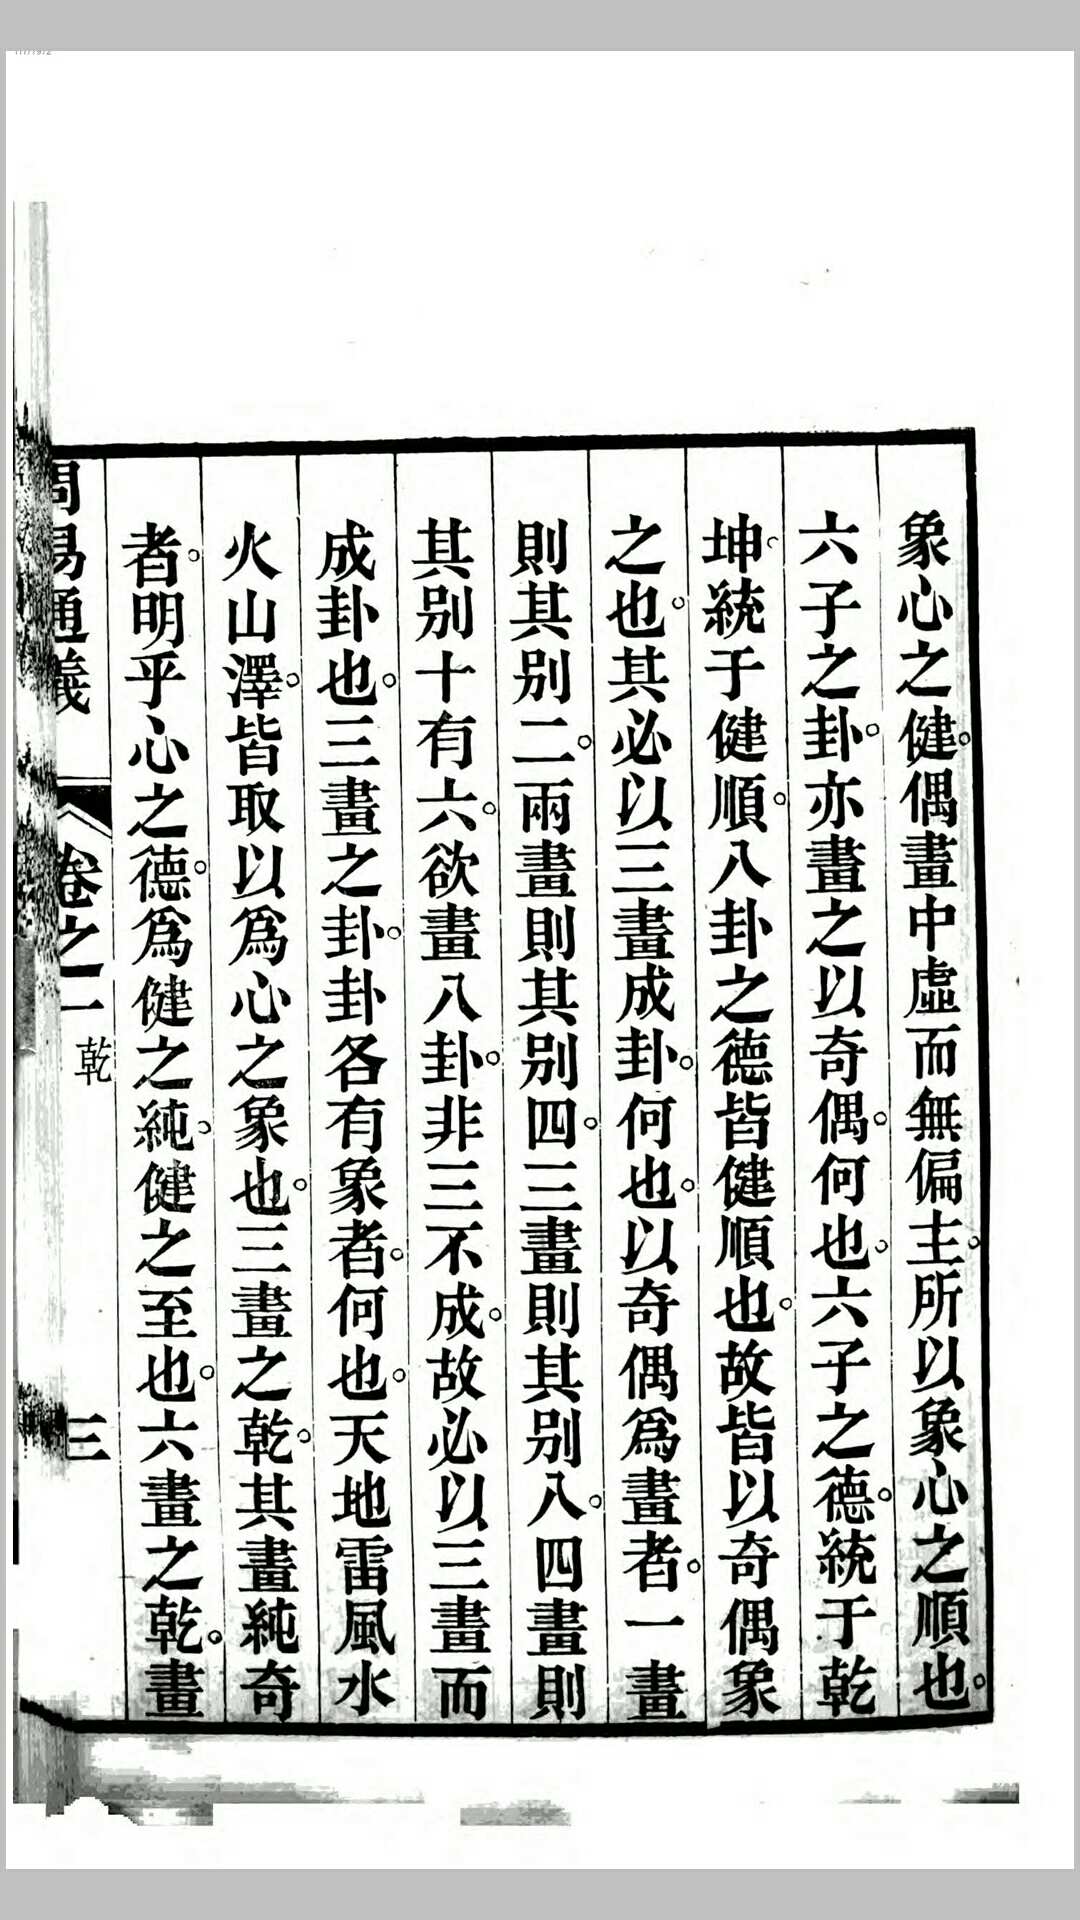 象心之健。偶畫中虛而無偏主。所以象心之順也。
六子之卦。亦畫之以奇偶。何也。六子之德。統于乾
坤。統于健順。八卦之德皆健順也。故皆以奇偶象
之也。其必以三畫成卦。何也。以奇偶爲畫者。一畫
則其别二。兩畫則其别四。三畫則其别八。四畫則
其别十有六。欲畫八卦。非三不成。故必以三畫而
成卦也。三畫之卦。卦各有象者。何也。天地雷風水
火山澤。皆取以爲心之象也。三畫之乾。其畫純奇
者。明乎心之德。爲健之純。健之至也。六畫之乾。畫
周易通義
卷之一
乾
三